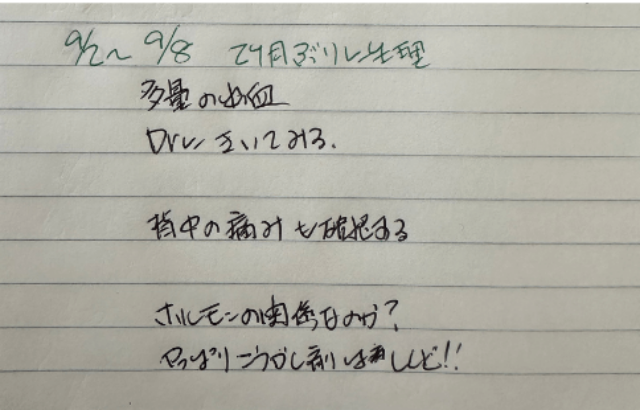 9/2〜9/8 2ヶ月ぶりに生理
多量の出血
Drにきいてみる.
背中の痛みも確認する
ホルモンの関係なのか?
やっぱりこうがん剤はしんど!!